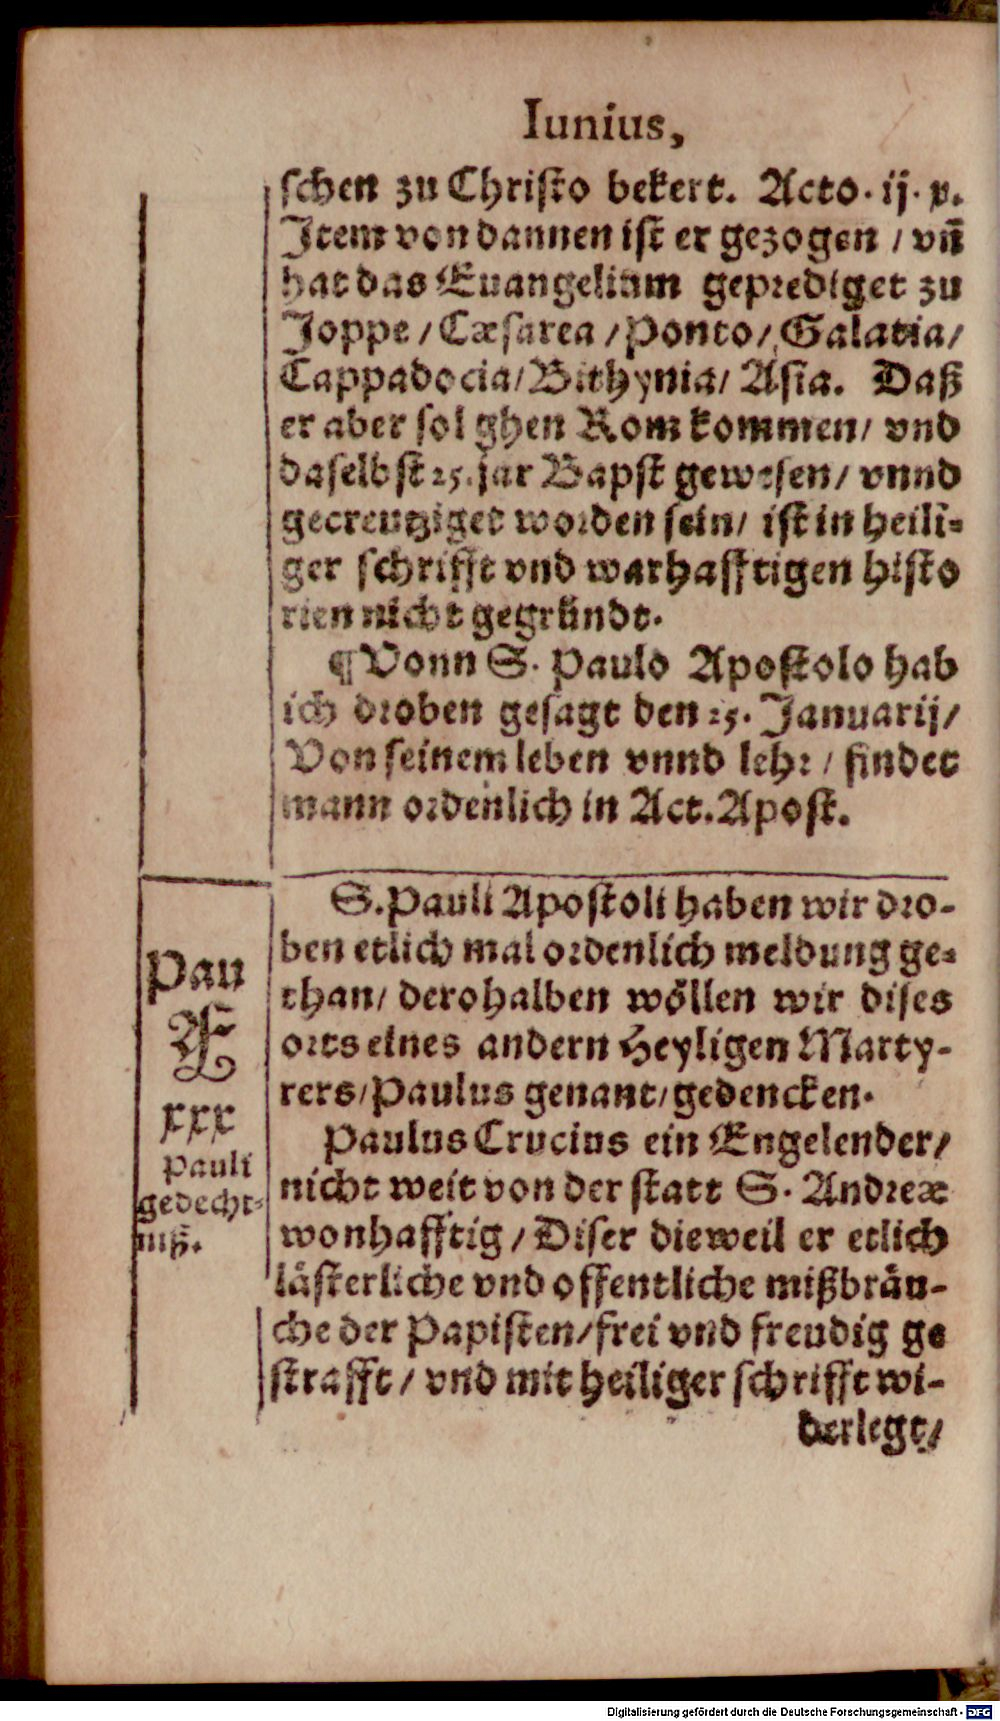 Iunius,
schen zu Christo bekert. Acto. ij. v.
Item von dannen ist er gezogen / vñ
hat das Euangelium geprediget zu
Joppe / Cæsarea / Ponto / Galatia /
Cappadocia / Bithynia / Asia. Daß
er aber sol ghen Rom kommen / vnd
daselbst 25. jar Bapst gewesen / vnnd
gecreutziget worden sein / ist in heili=
ger schrifft vnd warhafftigen histo
rien nicht gegründt.
¶ Vonn S. Paulo Apostolo hab
ich droben gesagt den 25. Januarij /
Von seinem leben vnnd lehr / findet
mann ordenlich in Act. Apost.
S. Pauli Apostoli haben wir dro-
ben etlich mal ordenlich meldung ge=
than / derohalben wöllen wir dises
orts eines andern Heyligen Marty-
rers / Paulus genant / gedencken.
Paulus Crucius ein Engelender /
nicht weit von der statt S. Andreæ
wonhafftig / Diser dieweil er etlich
lästerliche vnd offentliche mißbräu-
che der Papisten / frei vnd freudig ge
strafft / vnd mit heiliger schrifft wi-
derlegt /
Pau
Æ
xxx
Pauli
gedecht=
niß.
Digitalisierung gefördert durch die Deutsche Forschungsgemeinschaft - DFG